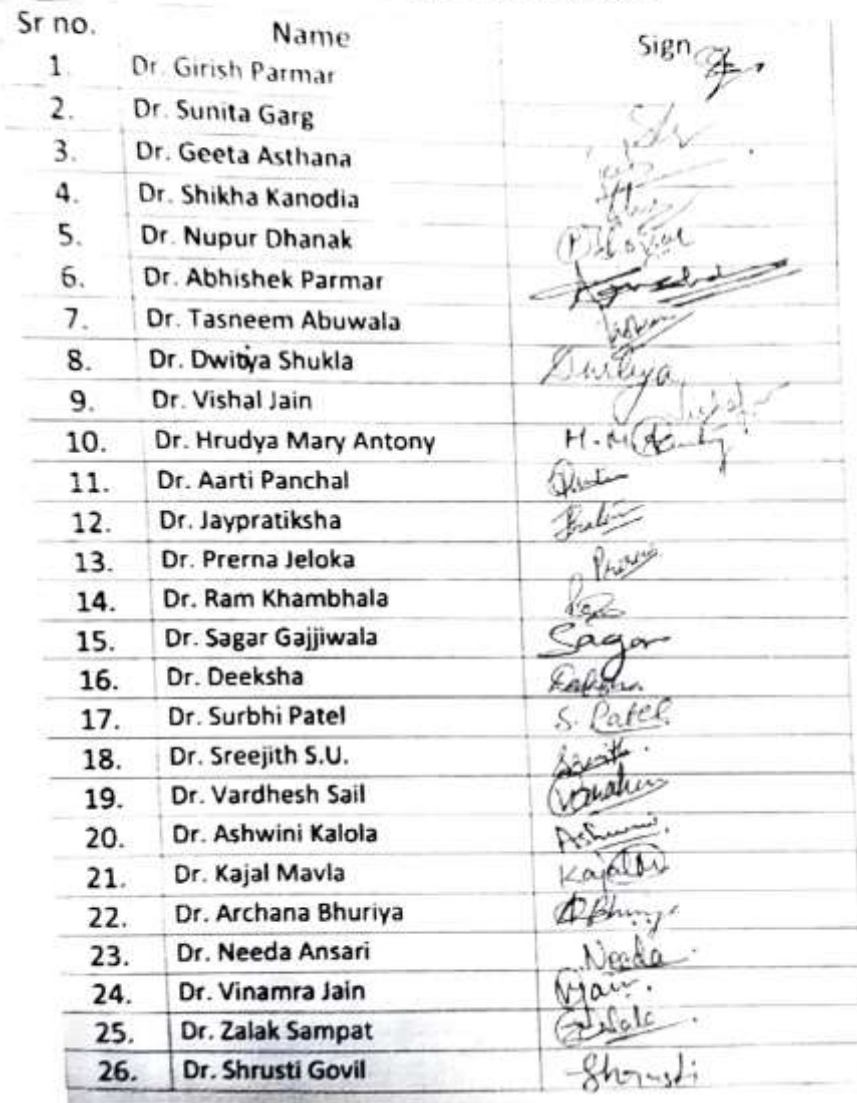 Sr no. Name Sign
1. Dr. Girish Parmar
2. Dr. Sunita Garg
3. Dr. Geeta Asthana
4. Dr. Shikha Kanodia
5. Dr. Nupur Dhanak
6. Dr. Abhishek Parmar
7. Dr. Tasneem Abuwala
8. Dr. Dwitiya Shukla
9. Dr. Vishal Jain
10. Dr. Hrudya Mary Antony
11. Dr. Aarti Panchal
12. Dr. Jaypratiksha
13. Dr. Prerna Jeloka
14. Dr. Ram Khambhala
15. Dr. Sagar Gajjiwala Sagar
16. Dr. Deeksha
17. Dr. Surbhi Patel S. Patel
18. Dr. Sreejith S.U.
19. Dr. Vardhesh Sail
20. Dr. Ashwini Kalola Ashwini
21. Dr. Kajal Mavla Kajal
22. Dr. Archana Bhuriya
23. Dr. Needa Ansari Needa
24. Dr. Vinamra Jain VJain.
25. Dr. Zalak Sampat
26. Dr. Shrusti Govil Shrusti